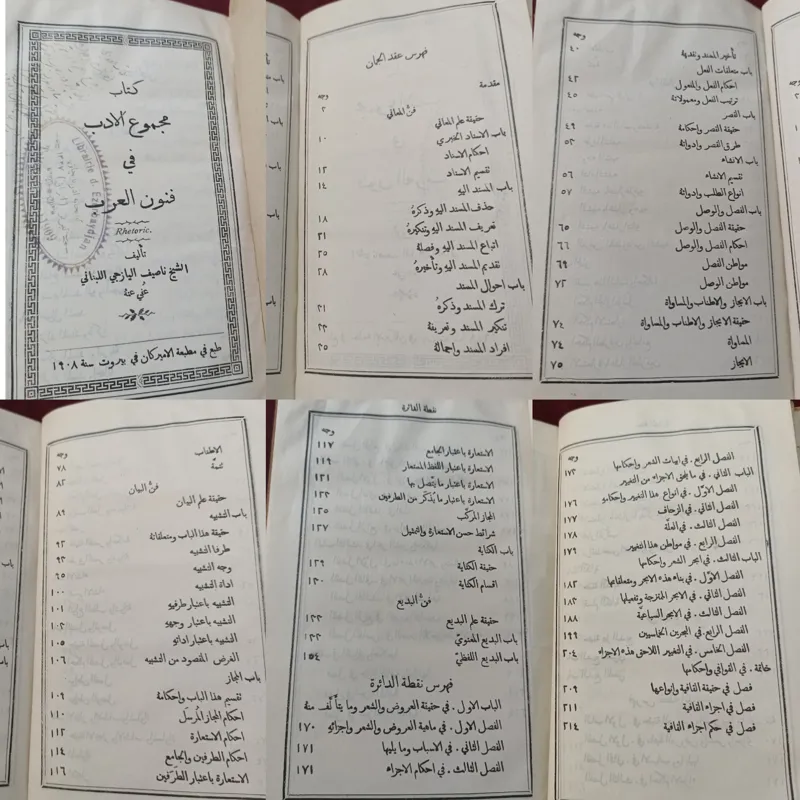 كتاب
مجموع الادب
في
فنون العرب
Rhetoric.
تأليف
الشيخ ناصيف اليازجي اللبناني
عُفي عنهُ
طبع في مطبعة الاميركان في بيروت سنة ١٩٠٨
Librairie d.
فهرس عقد الجمان
وجه
مقدمة
فنُّ المعاني ٢
حقيقة علم المعاني
باب الاسناد الخبري ١٠
احكام الاسناد
تقسيم الاسناد ١٢
باب المسند اليهِ ١٤
حذف المسند اليهِ وذكرهُ
تعريف المسند اليهِ وتنكيرهُ ١٨
اتباع المسند اليهِ وفصلهُ ٢١
تقديم المسند اليهِ وتأخيرهُ ٢٥
باب احوال المسند ٢٨
ترك المسند وذكرهُ
تنكير المسند وتعريفهُ ٣١
افراد المسند واجمالهُ ٣٣
٣٥
وجه
تأخير المسند وتقديمهُ ٤٠
باب متعلقات الفعل
احكام الفعل والمعمول ٤٣
ترتيب الفعل ومعمولاتهِ ٤٥
باب القصر
حقيقة القصر واحكامهُ ٤٩
طرق القصر وادواتهُ ٥٣
باب الانشاء
تقسيم الانشاء ٥٦
انواع الطلب وادواتهُ ٥٧
باب الفصل والوصل
حقيقة الفصل والوصل ٦٥
احكام الفصل والوصل ٦٦
مواطن الفصل ٦٩
مواطن الوصل ٧٢
باب الايجاز والاطناب والمساواة
حقيقة الايجاز والاطناب والمساواة ٧٤
المساواة ٧٤
الايجاز ٧٥
وجه
الاطناب ٧٨
تتمَّة ٨٢
فنُّ البيان
حقيقة علم البيان ٨٩
باب التشبيه
حقيقة هذا الباب ومتعلقاتهُ ٩٢
طرفا التشبيه ٩٣
وجه التشبيه ٩٥
اداة التشبيه ١٠٠
التشبيه باعتبار طرفيهِ ١٠١
التشبيه باعتبار وجههِ ١٠٣
التشبيه باعتبار اداتهِ ١٠٥
الغرض المقصود من التشبيه ١٠٦
باب المجاز
تقسيم هذا الباب واحكامهُ ١٠٩
احكام المجاز المُرسَل ١١٠
احكام الاستعارة ١١٢
احكام الطرفين والجامع ١١٤
الاستعارة باعتبار الطرَفين ١١٦
نقطة الدائرة
الاستعارة باعتبار الجامع ١١٧
الاستعارة باعتبار اللفظ المستعار ١١٩
الاستعارة باعتبار ما يتَّصل بها ١٢١
الاستعارة باعتبار ما يُذكَر من الطرفين ١٢٣
المجاز المركَّب ١٢٥
شرائط حسن الاستعارة والتمثيل ١٢٧
باب الكناية
حقيقة الكناية ١٢٩
اقسام الكناية ١٣٠
فنُّ البديع
حقيقة علم البديع ١٣٣
باب البديع المعنويّ ١٣٣
باب البديع اللفظيّ ١٥٤
فهرس نقطة الدائرة
الباب الاول. في حقيقة العروض والشعر وما يتأَلَّف منهُ
الفصل الاول. في ماهية العروض والشعر واجزائهِ ١٧٠
الفصل الثاني. في الاسباب وما يليها ١٧١
الفصل الثالث. في احكام الاجزاء ١٧١
وجه
الفصل الرابع. في ابيات الشعر واحكامها ١٧٣
الباب الثاني. في ما يلحق الاجزاء من التغيير
الفصل الاوَّل. في انواع هذا التغيير واحكامهِ ١٧٦
الفصل الثاني. في الزحاف ١٧٧
الفصل الثالث. في العلَّة ١٧٨
الفصل الرابع. في مواطن هذا التغيير ١٧٩
الباب الثالث. في ابحر الشعر واحكامها
الفصل الاول. في بناء هذه الابحر ومتعلقاتها ١٨٢
الفصل الثاني. في الابحر الممتزجة وتفعيلها ١٨٣
الفصل الثالث. في الابحر السباعيَّة ١٨٨
الفصل الرابع. في البحرين الخماسيين ١٩٩
الفصل الخامس. في التغيير اللاحق هذه الاجزاء ٢٠٤
خاتمة. في القوافي واحكامها
فصل في حقيقة القافية وانواعها ٢٠٩
فصل في اجزاء القافية ٢١١
فصل في حكم اجزاء القافية ٢١٤